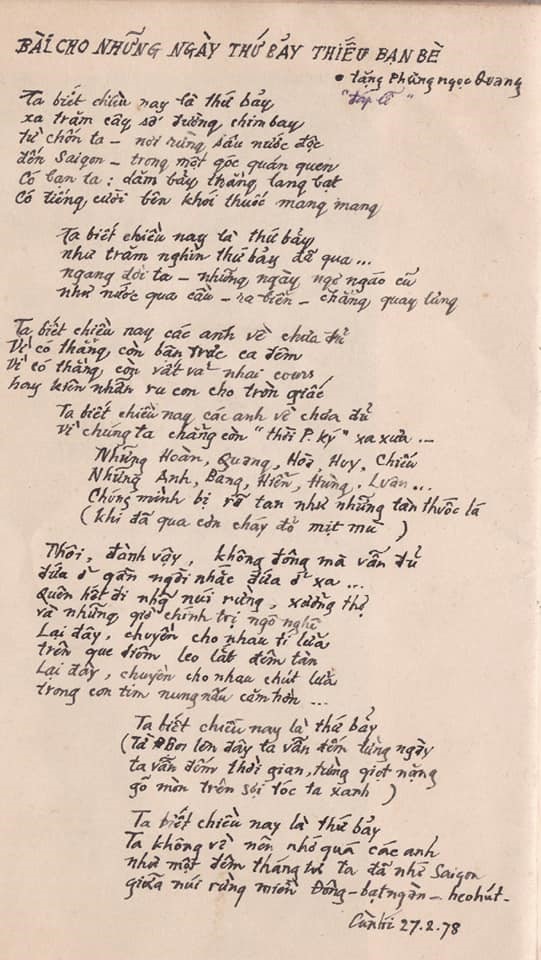 BÀI CHO NHỮNG NGÀY THỨ BẢY THIẾU BẠN BÈ
• tặng Phùng Ngọc Quang
"đáp lễ"
Ta biết chiều nay là thứ bảy
xa trăm cây số đường chim bay
từ chốn ta – nơi rừng sâu nước độc
đến Saigon – trong một góc quán quen
Có bạn ta : dăm bảy thằng lang bạt
Có tiếng cười bên khói thuốc mang mang
Ta biết chiều nay là thứ bảy
như trăm nghìn thứ bảy đã qua ...
ngang đời ta – những ngày ngơ ngáo cũ
như nước qua cầu – ra biển – chẳng quay lưng
Ta biết chiều nay các anh về chưa đủ
Vì có thằng còn bận trực ca đêm
Vì có thằng còn vất vả nhai cours
hay kiên nhẫn ru con cho tròn giấc
Ta biết chiều nay các anh về chưa đủ
Vì chúng ta chẳng còn "thời P. ký" xa xưa ...
Những Hoàn, Quang, Hòa, Huy, Chiếu
Những Anh, Bằng, Hiển, Hùng, Luân ...
Chúng mình bị rã tan như những tàn thuốc lá
(khi đã qua cơn cháy đỏ mịt mù)
Thôi, đành vậy, không đông mà vẫn đủ
đứa ở gần ngồi nhắc đứa ở xa ...
Quên hết đi những núi rừng, xưởng thợ
và những giờ chính trị ngô nghê
Lại đây, chuyền cho nhau tí lửa
trên que diêm leo lắt đêm tàn
Lại đây, chuyền cho nhau chút lửa
trong con tim nung nấu căm hờn ...
Ta biết chiều nay là thứ bảy
( lên đây ta vẫn đếm từng ngày
ta vẫn đếm thời gian, từng giọt nặng
gõ mòn trên sợi tóc ta xanh )
Ta biết chiều nay là thứ bảy
Ta không về nên nhớ quá các anh
như một đêm tháng tư ta đã nhớ Saigon
giữa núi rừng miền Đông – bạt ngàn – heo hút.
27.2.78